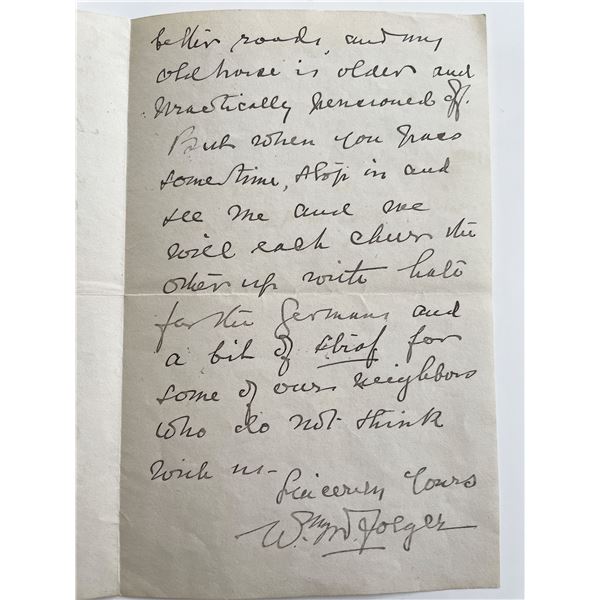 better roads, and my
old horse is older and
practically pensioned off.
But when you pass
sometime, stop in and
see me and we
will each cheer the
other up with hate
for the Germans and
a bit of straf for
some of our neighbors
who do not think
with us -
Sincerely Yours
Wm